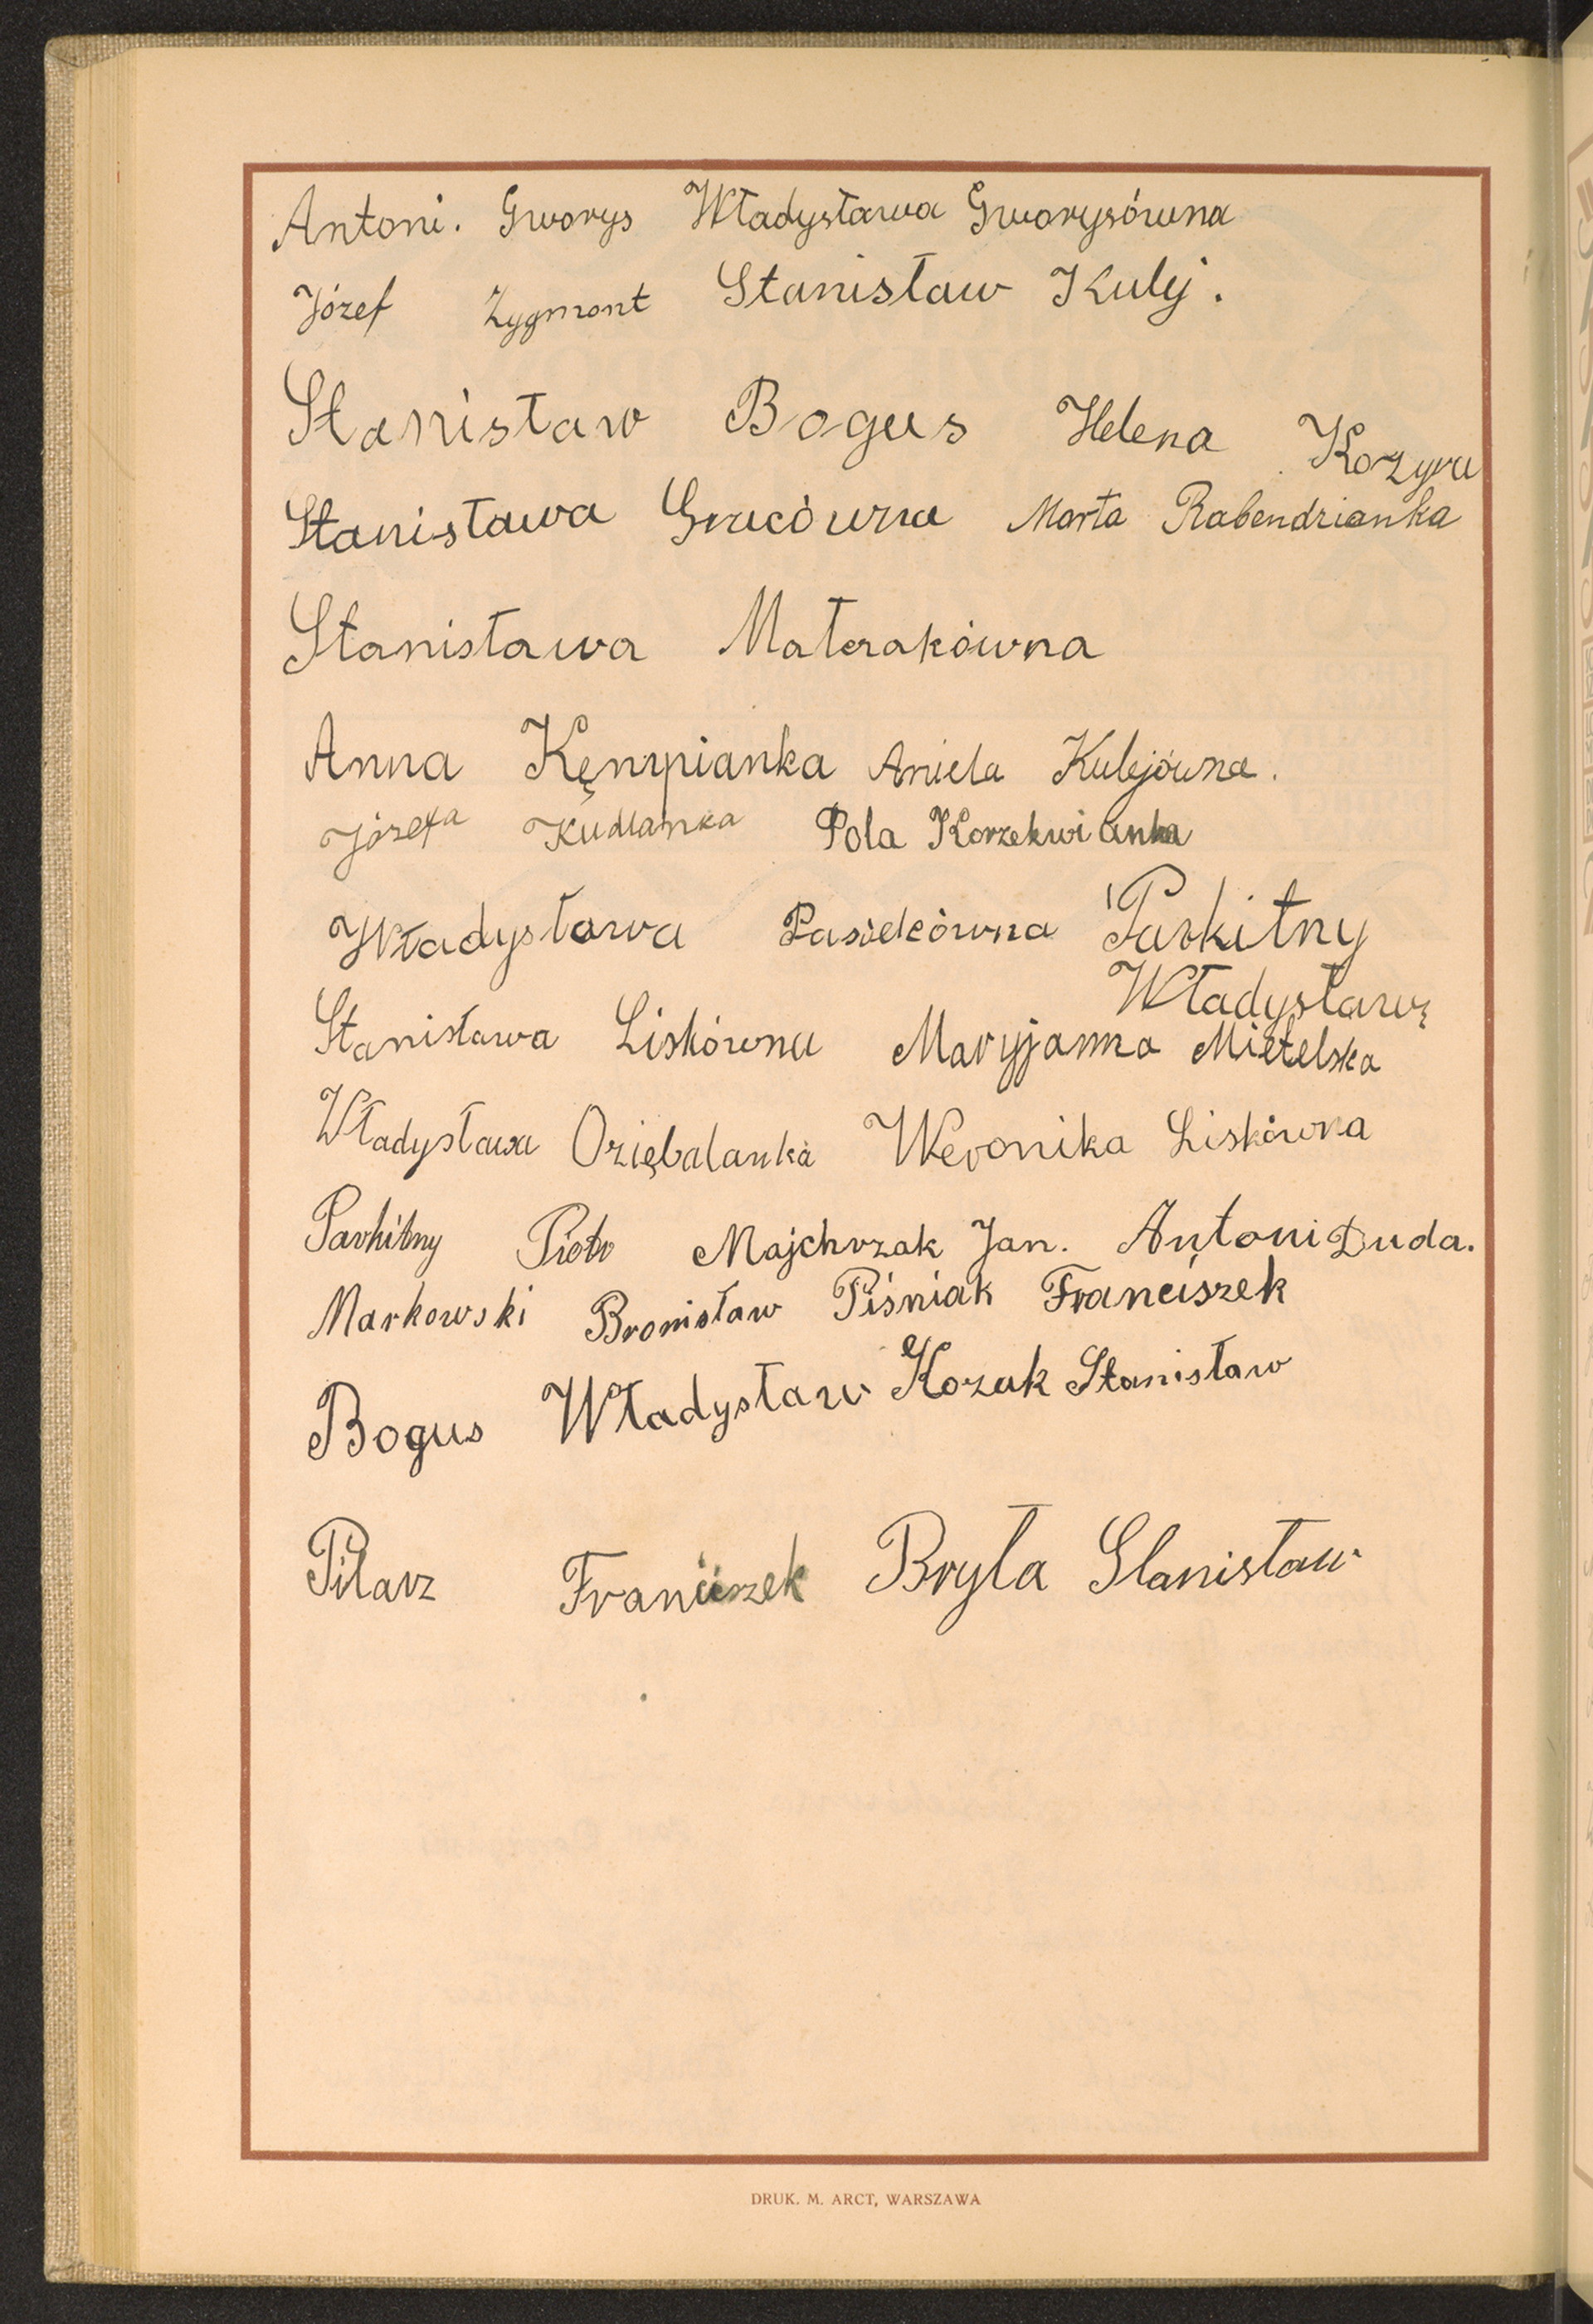 Antoni. Gworys Władysława Gworysówna
Józef Zygmont Stanisław Kulej.
Stanisław Bogus Helena Kozyra
Stanisława Gracówna Marta Rabendzianka
Stanisława Materakówna
Anna Kęmpianka Aniela Kulejówna.
Józefa Kudlanka Pola Korzekwianka
Władysława Pasiekówna Parkitny
Władysław
Stanisława Liskówna Maryjanna Mietelska
Władysława Oziębalanka Weronika Liskówna
Parkitny Piotr Majchrzak Jan. Antoni Duda.
Markowski Bronisław Piśniak Franciszek
Bogus Władysław Kozak Stanisław
Pilarz Franciszek Bryła Stanisław
DRUK. M. ARCT, WARSZAWA